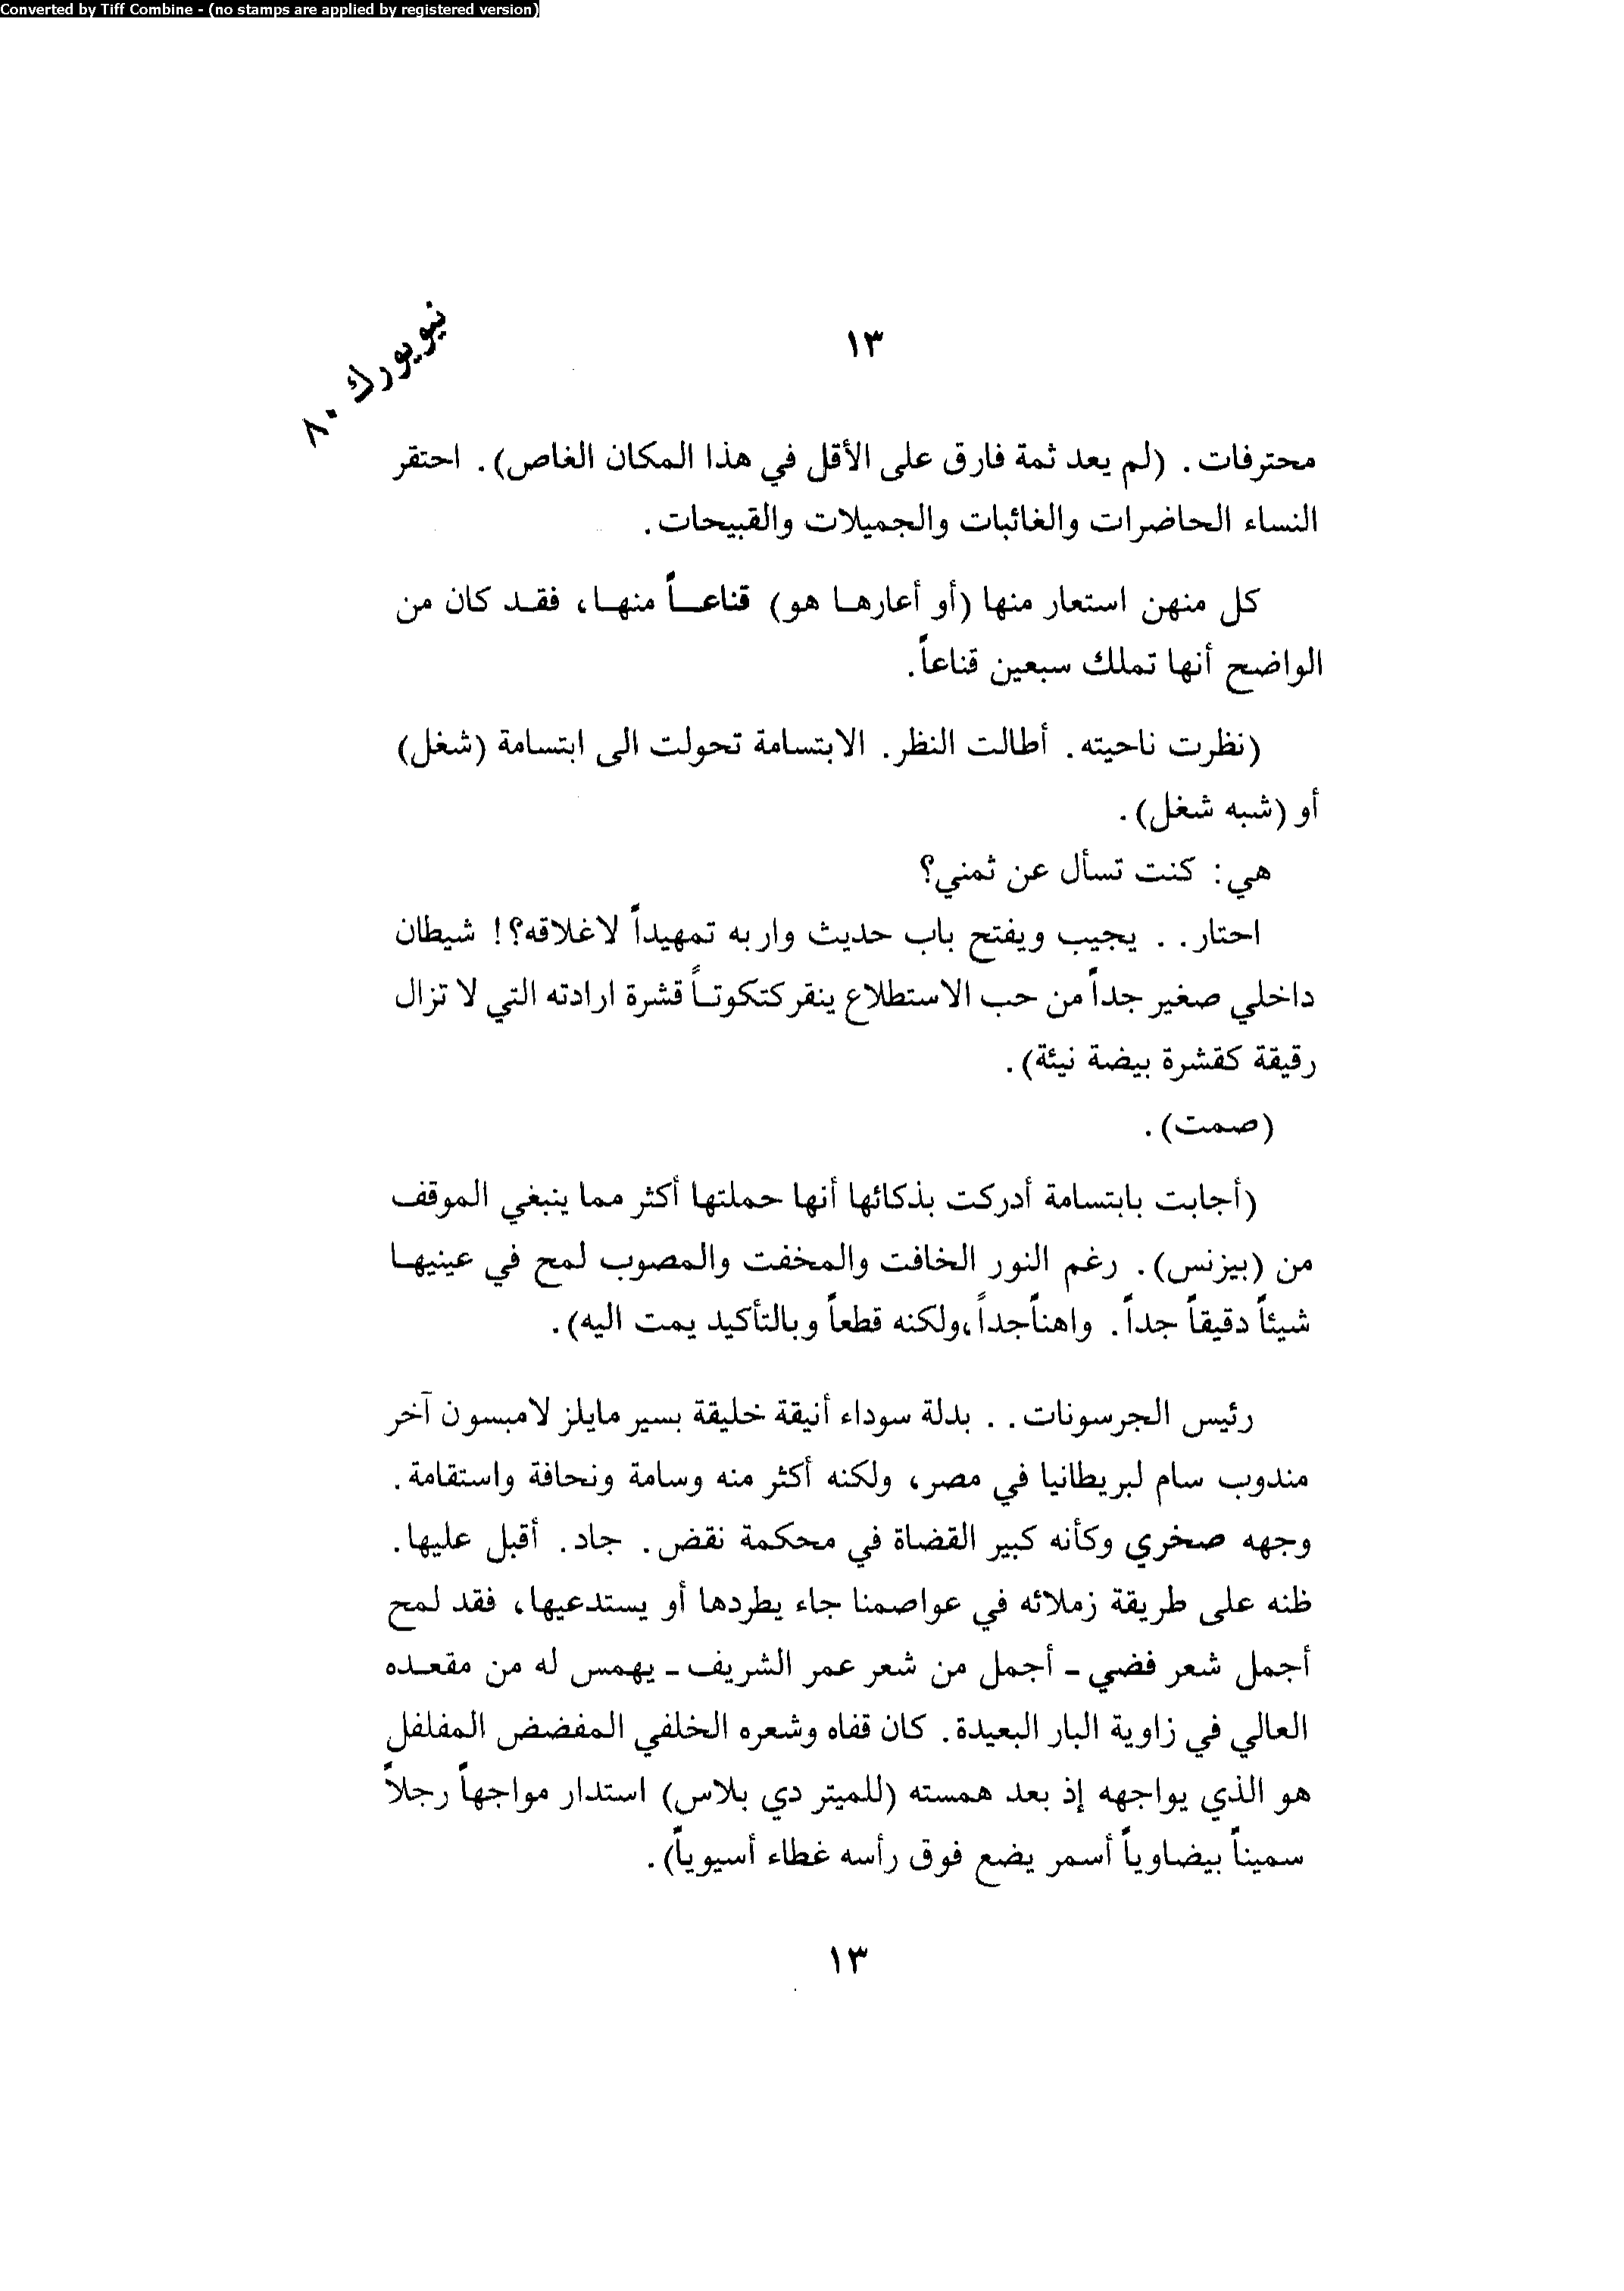 Converted by Tiff Combine - (no stamps are applied by registered version)
نيويورك ٨٠
١٣
محترفات. (لم يعد ثمة فارق على الأقل في هذا المكان الغاص). احتقر
النساء الحاضرات والغائبات والجميلات والقبيحات.
كل منهن استعار منها (أو أعارها هو) قناعاً منها، فقد كان من
الواضح أنها تملك سبعين قناعاً.
(نظرت ناحيته. أطالت النظر. الابتسامة تحولت الى ابتسامة (شغل)
أو (شبه شغل).
هي: كنت تسأل عن ثمني؟
احتار.. يجيب ويفتح باب حديث واربه تمهيداً لاغلاقه؟! شيطان
داخلي صغير جداً من حب الاستطلاع ينقر كتكوتاً قشرة ارادته التي لا تزال
رقيقة كقشرة بيضة نيئة).
(صمت).
(أجابت بابتسامة أدركت بذكائها أنها حملتها أكثر مما ينبغي الموقف
من (بيزنس). رغم النور الخافت والمخفت والمصوب لمح في عينيها
شيئاً دقيقاً جداً. واهناً جداً، ولكنه قطعاً وبالتأكيد يمت اليه).
رئيس الجرسونات.. بدلة سوداء أنيقة خليقة بسير مايلز لامبسون آخر
مندوب سام لبريطانيا في مصر، ولكنه أكثر منه وسامة ونحافة واستقامة.
وجهه صخري وكأنه كبير القضاة في محكمة نقض. جاد. أقبل عليها.
ظنه على طريقة زملائه في عواصمنا جاء يطردها أو يستدعيها، فقد لمح
أجمل شعر فضي - أجمل من شعر عمر الشريف - يهمس له من مقعده
العالي في زاوية البار البعيدة. كان قفاه وشعره الخلفي المفضض المفلفل
هو الذي يواجهه إذ بعد همسته (للميتر دي بلاس) استدار مواجهاً رجلاً
سميناً بيضاوياً أسمر يضع فوق رأسه غطاء أسيوياً).
١٣